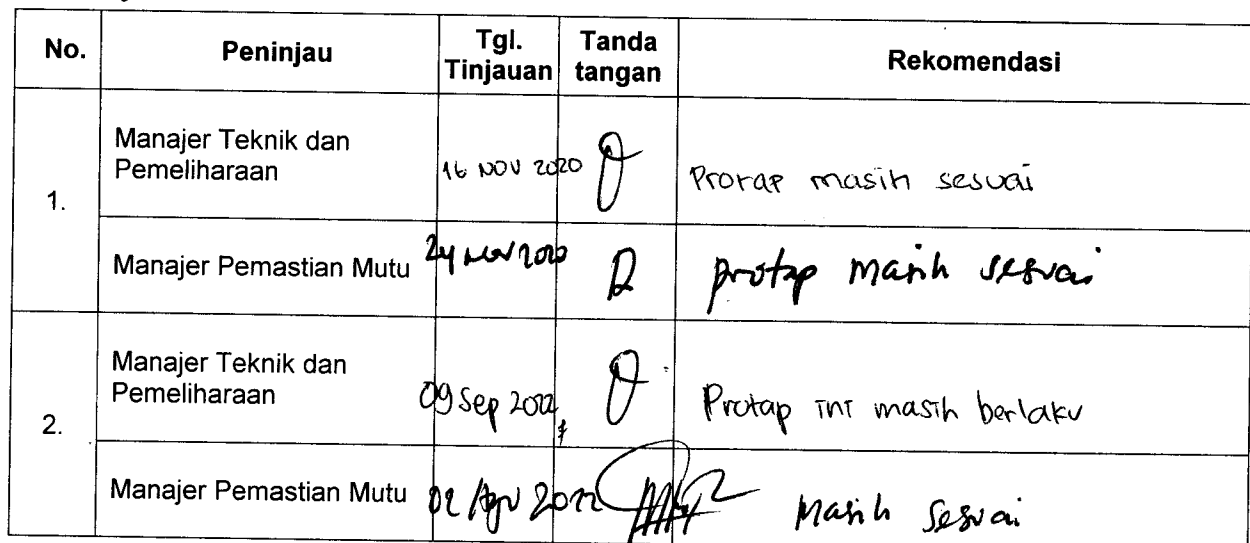 No. Peninjau Tgl. Tinjauan Tanda tangan Rekomendasi
1.
Manajer Teknik dan
Pemeliharaan
16 NOV 2020
Protap masih sesuai
Manajer Pemastian Mutu
24 Nov 2020
protap masih sesuai
2.
Manajer Teknik dan
Pemeliharaan
09 Sep 2022
Protap ini masih berlaku
Manajer Pemastian Mutu
02 Agu 2022
Masih sesuai